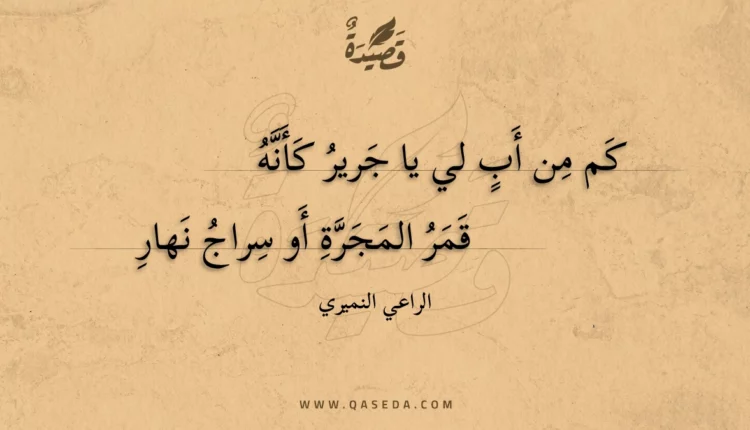 قَصِيْدَةٌ
كَم مِن أَبٍ لي يا جَريرُ كَأَنَّهُ
قَمَرُ المَجَرَّةِ أَو سِراجُ نَهارِ
الراعي النميري
WWW.QASEDA.COM